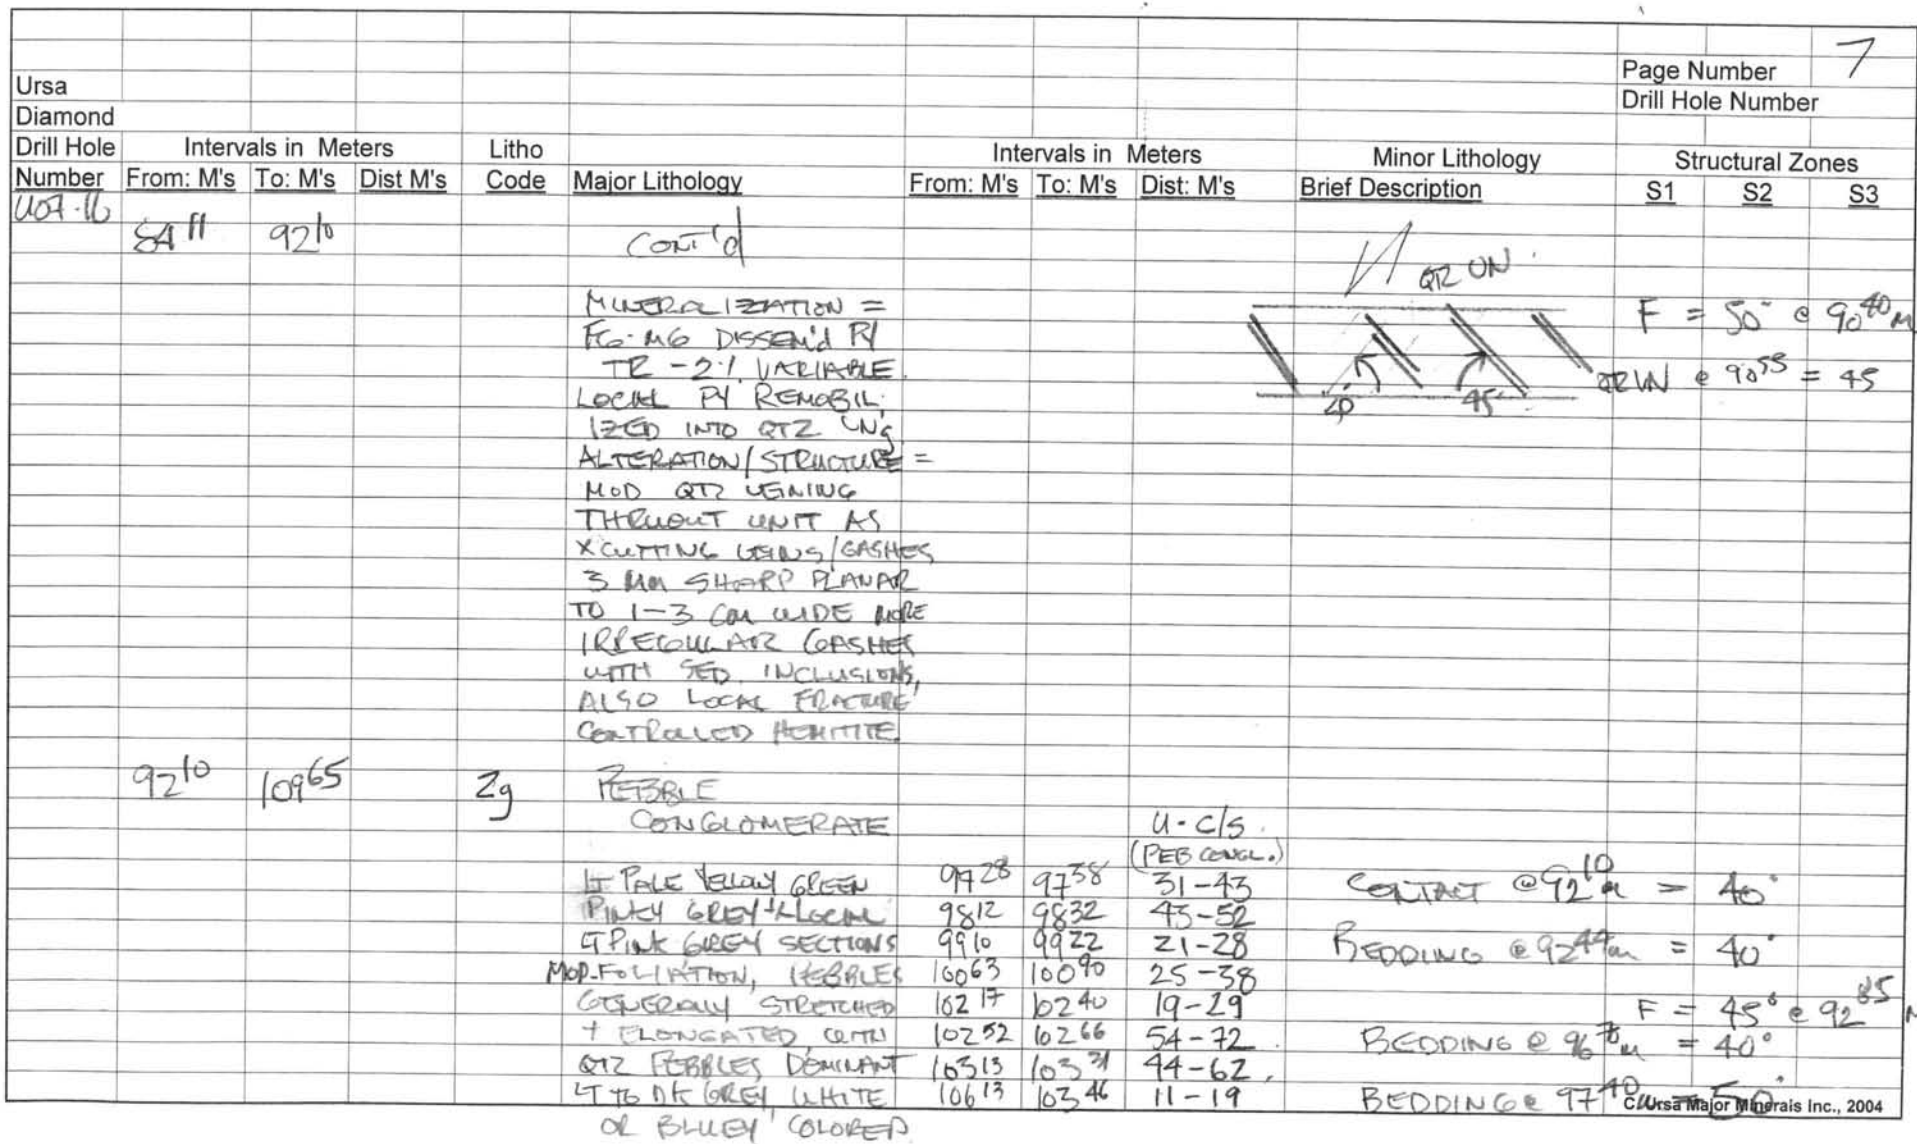 7
Page Number
Ursa
Drill Hole Number
Diamond
Drill Hole Intervals in Meters Litho Intervals in Meters Minor Lithology Structural Zones
Number From: M's To: M's Dist M's Code Major Lithology From: M's To: M's Dist: M's Brief Description S1 S2 S3
U07-16
84 11 92 10 CONT'd
QTZ VN
MINERALIZATION =
F = 50° @ 90 40 M
FG-MG DISSEM'd PY
TR - 2% VARIABLE
QTZ VN @ 90 55 = 45
LOCAL PY REMOBIL-
45
IZED INTO QTZ VNG
ALTERATION/STRUCTURE =
MOD QTZ VEINING
THRUOUT UNIT AS
XCUTTING VEINS/GASHES
3 MM SHARP PLANAR
TO 1-3 CM WIDE MORE
IRREGULAR GASHES
WITH SED. INCLUSIONS,
ALSO LOCAL FRACTURE
CONTROLLED HEMITITE
92 10 109 65 2g PEBBLE
CONGLOMERATE U-C/S
(PEB CONGL.)
LT PALE YELLOW GREEN 97 28 97 38 31-43 CONTACT @ 92 10 M = 40°
PINKY GREY + LOCAL 98 12 98 32 43-52
LT PINK GREY SECTIONS 99 10 99 22 21-28 BEDDING @ 92 44 m = 40°
MOD-FOLIATION, PEBBLES 100 63 100 90 25-38
GENERALLY STRETCHED 102 17 102 40 19-29 F = 45° @ 92 85 M
+ ELONGATED WITH 102 52 102 66 54-72 BEDDING @ 96 78 M = 40°
QTZ PEBBLES DOMINANT 103 13 103 31 44-62
LT TO DK GREY, WHITE 106 13 103 46 11-19 BEDDING @ 97 40 M = 50°
C/Ursa Major Minerals Inc., 2004
OR BLUEY COLORED